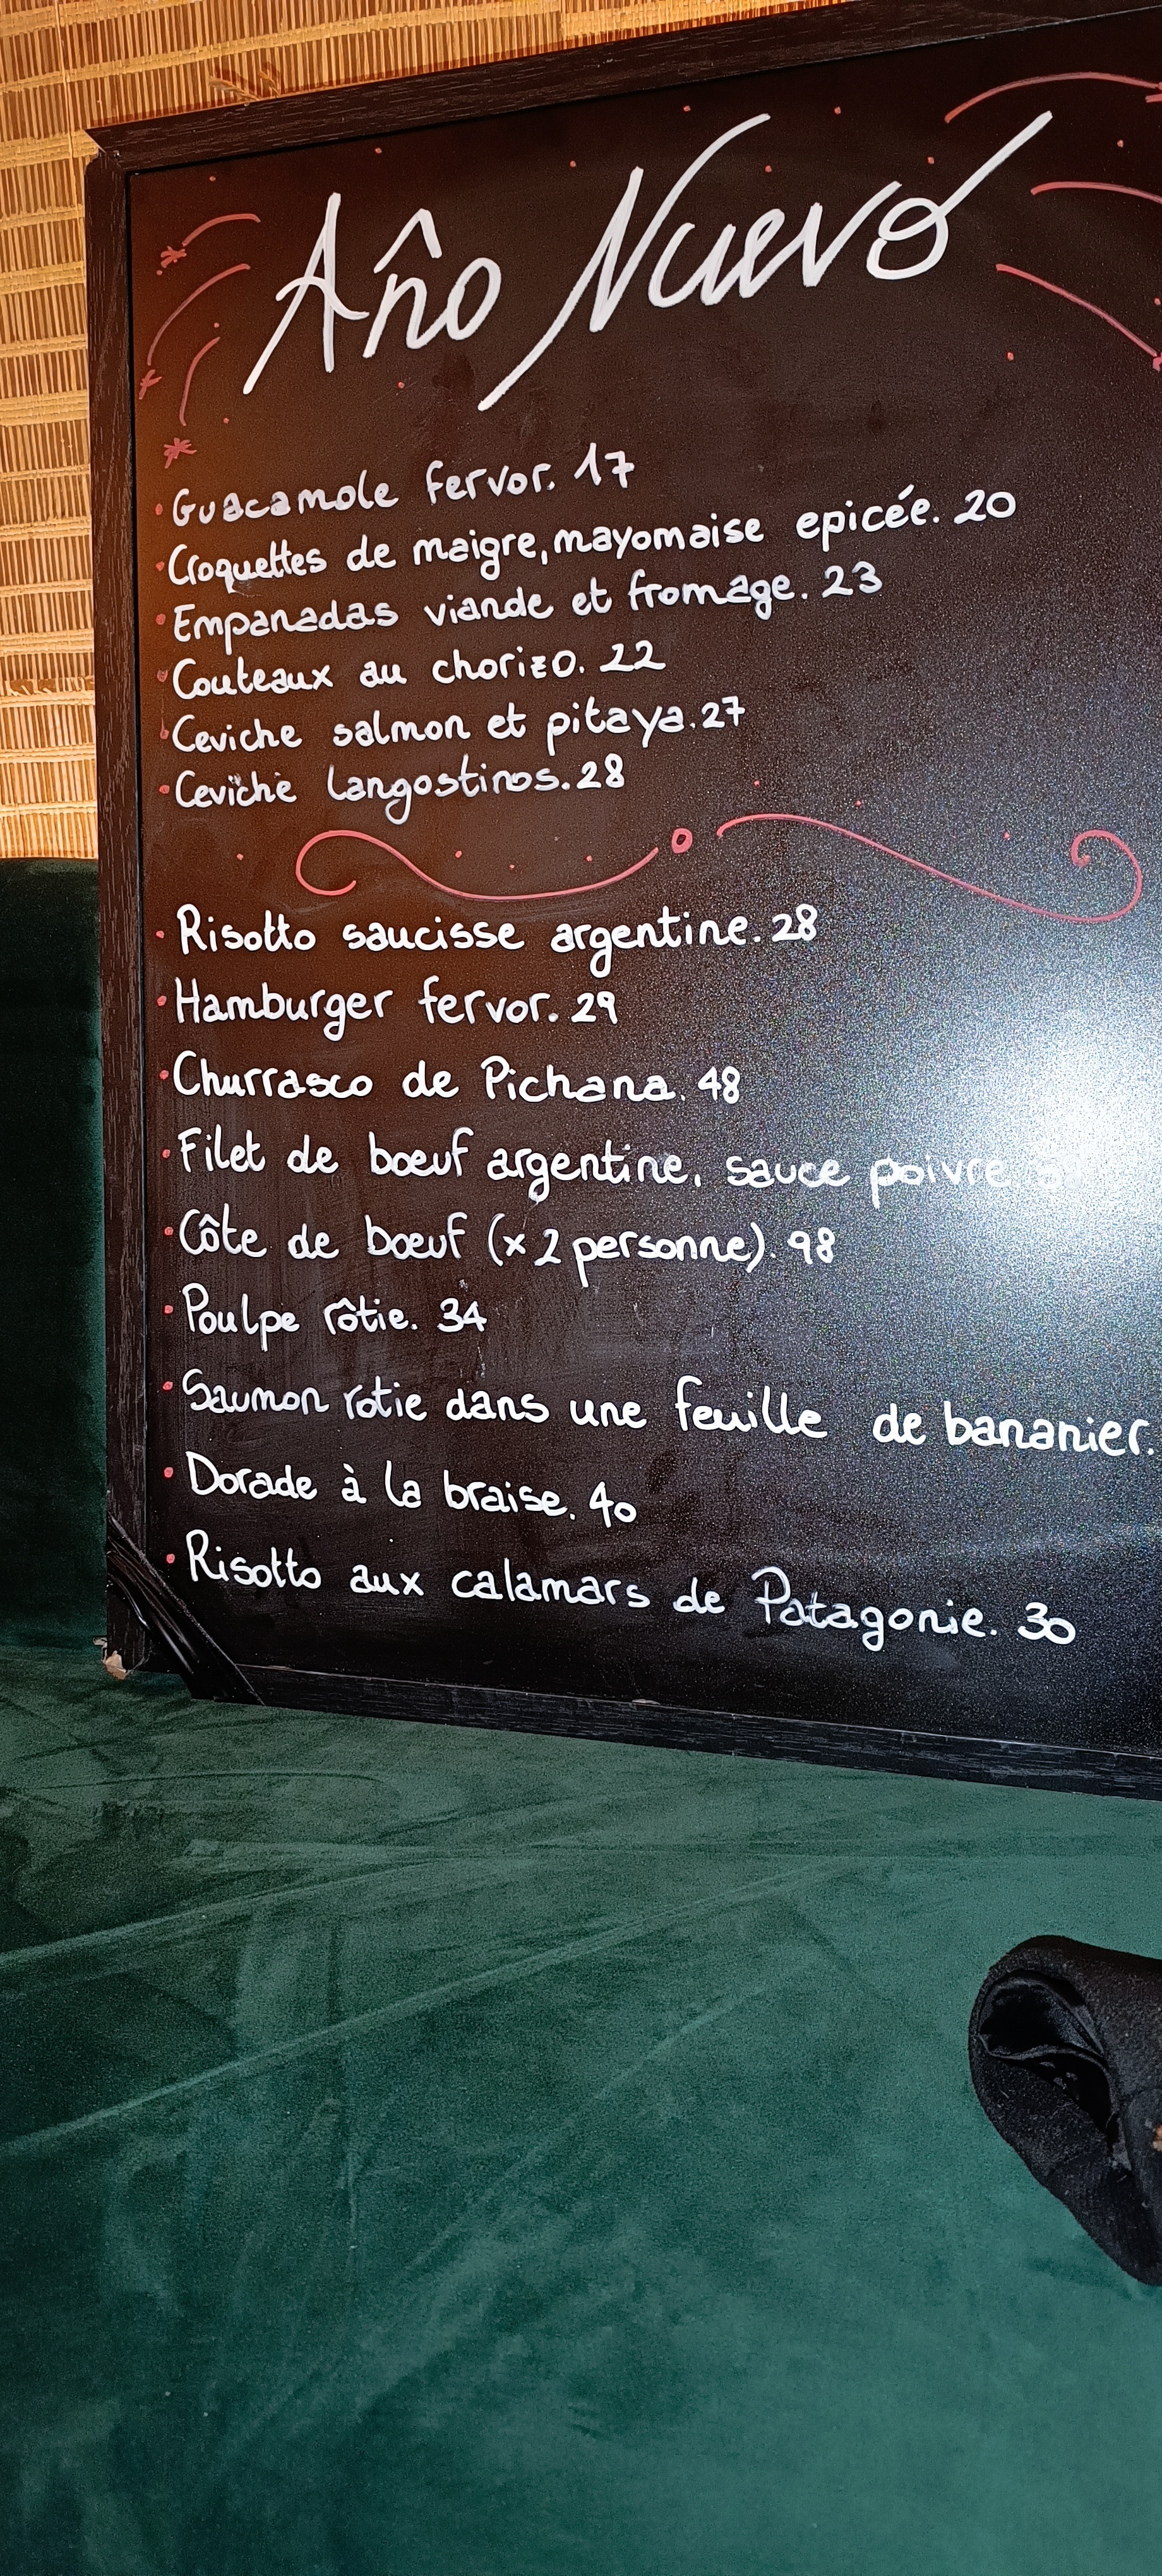 Año Nuevo
• Guacamole fervor. 17
• Croquettes de maigre, mayomaise epicée. 20
• Empanadas viande et fromage. 23
• Couteaux au chorizo. 22
• Ceviche salmon et pitaya. 27
• Ceviche langostinos. 28
• Risotto saucisse argentine. 28
• Hamburger fervor. 29
• Churrasco de Pichana. 48
• Filet de boeuf argentine, sauce poivre.
• Côte de boeuf (x 2 personne). 98
• Poulpe rôtie. 34
• Saumon rotie dans une feuille de bananier.
• Dorade à la braise. 40
• Risotto aux calamars de Patagonie. 30